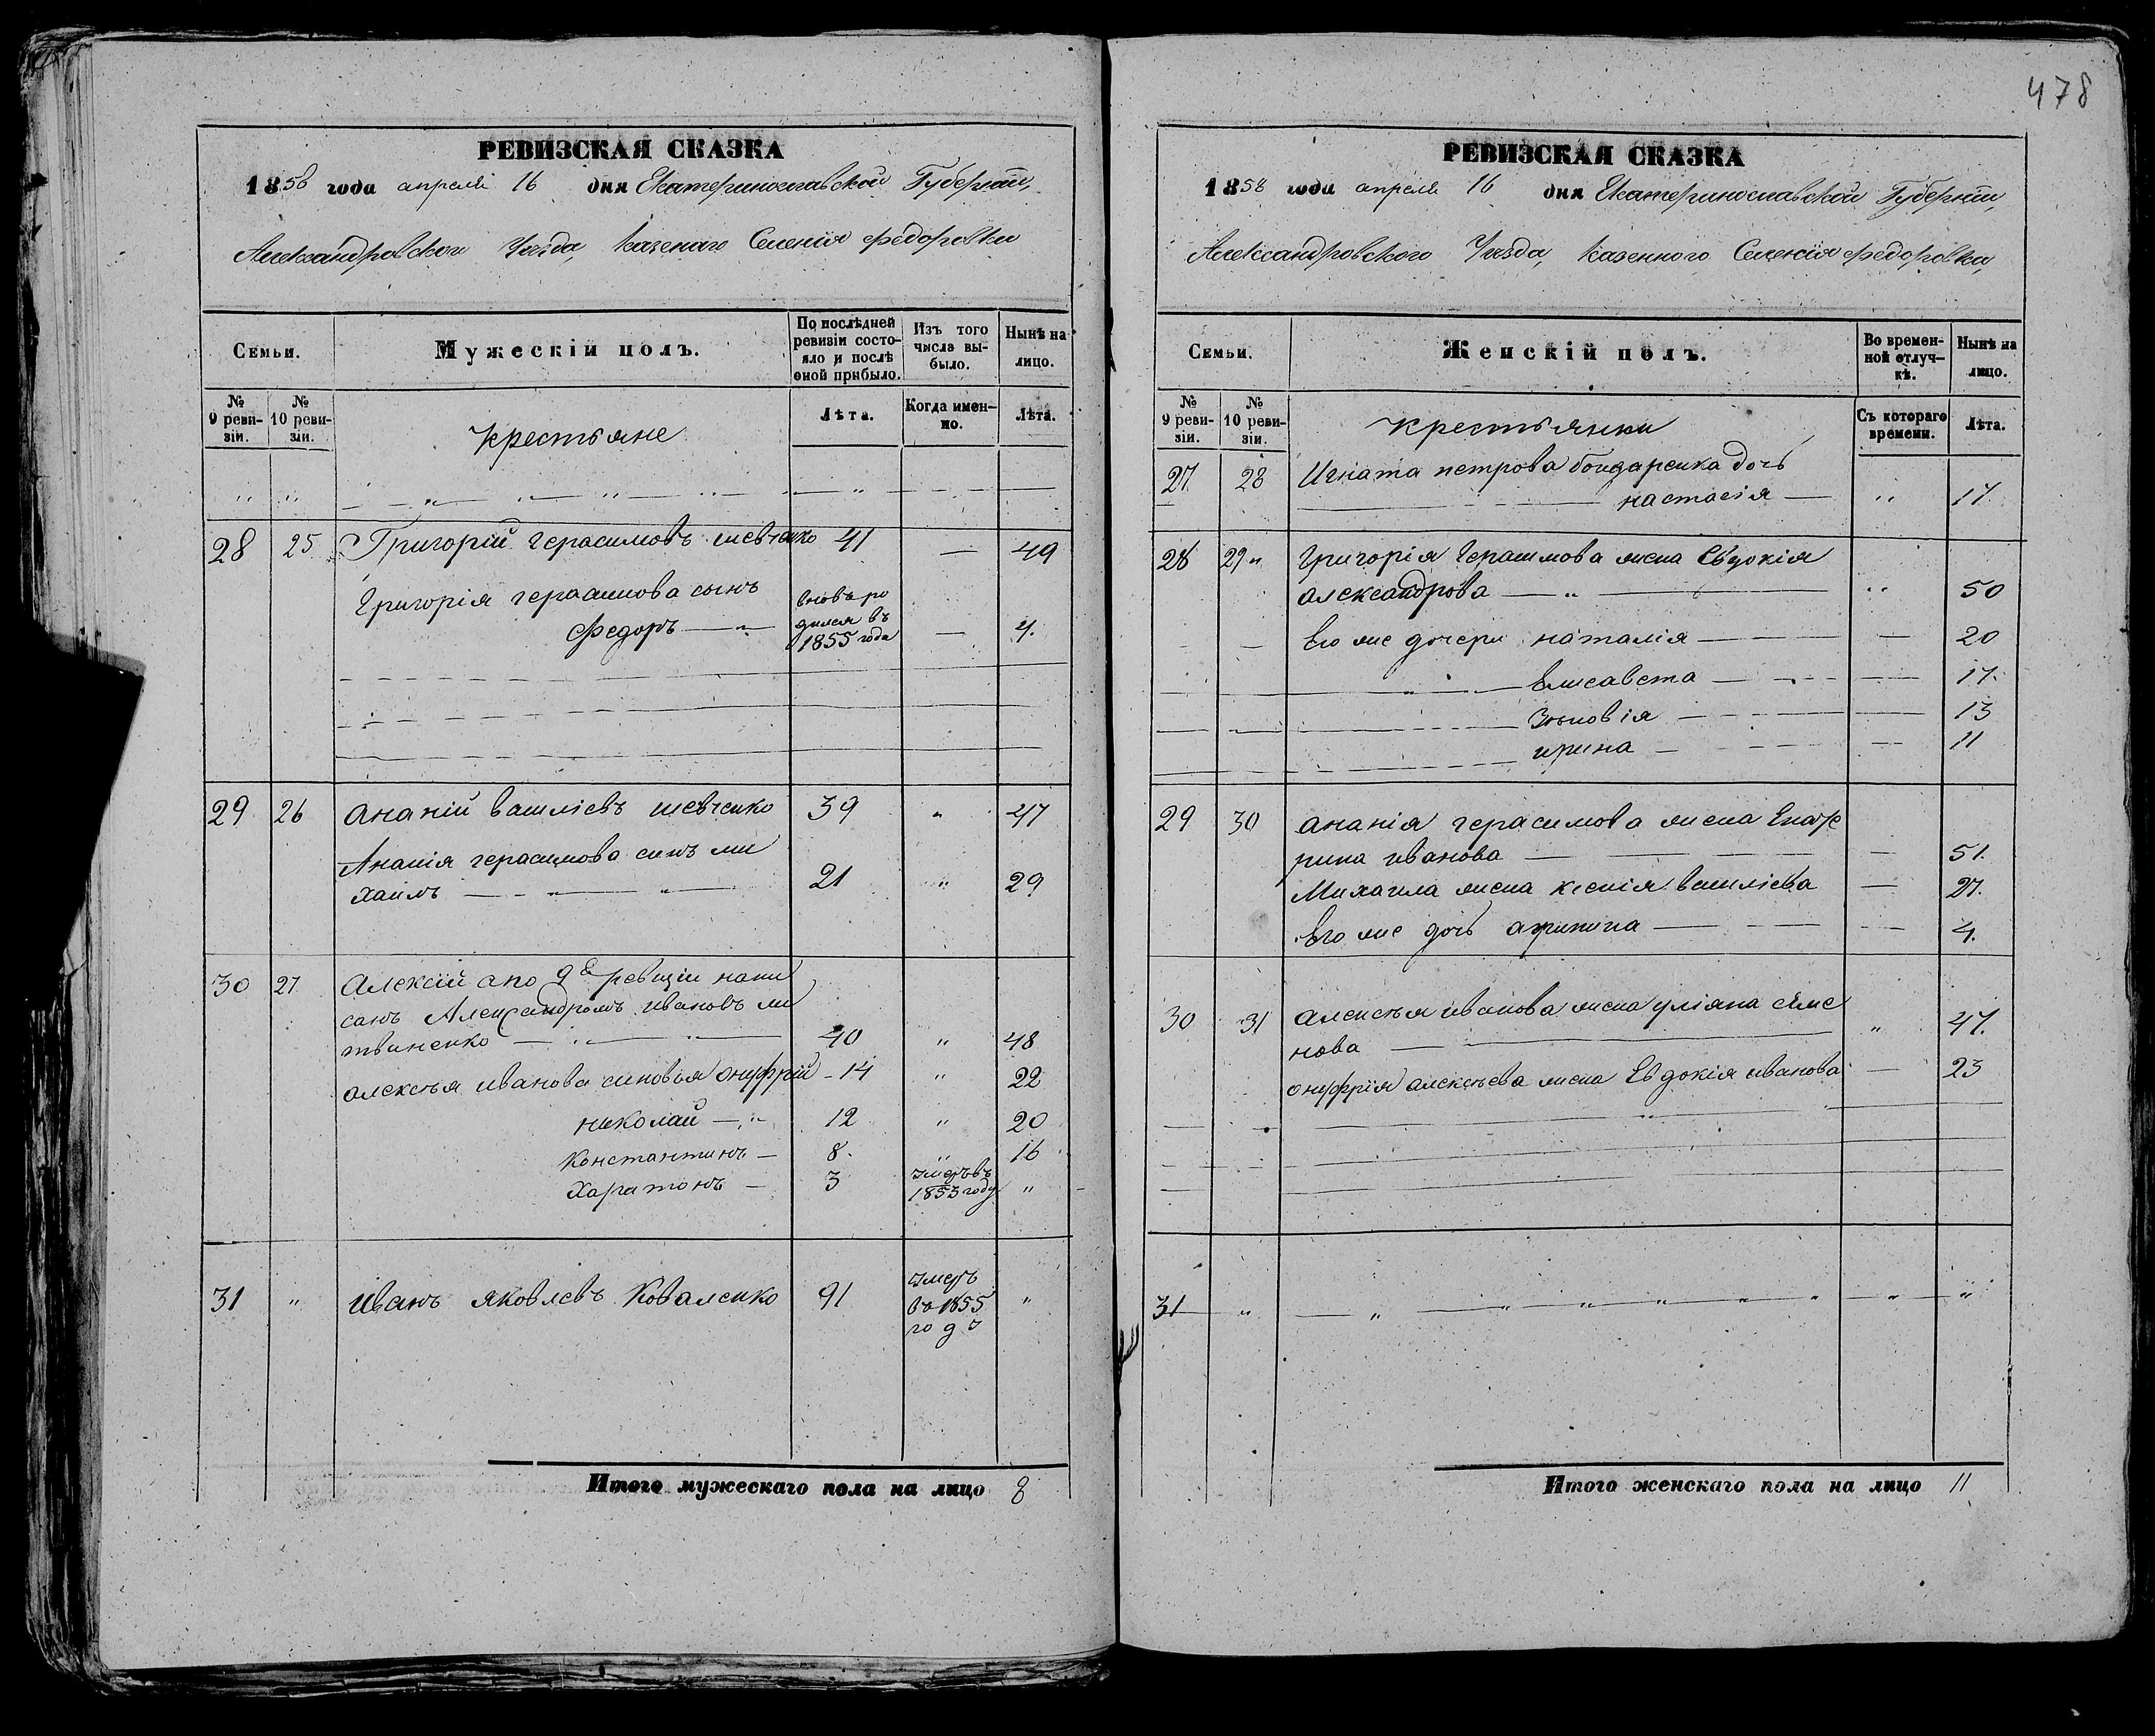 478
РЕВИЗСКАЯ СКАЗКА
1858 года апреля 16 дня Екатеринославской Губернии,
Александровского Уезда, Казенаго Селенія Федоровки
Семьи.
Мужескій полъ.
По послѣдней ревизіи состояло и послѣ оной прибыло.
Изъ того числа выбыло.
Нынѣ на лицо.
№ 9 ревизіи.
№ 10 ревизіи.
Крестьяне
Лѣта.
Когда именно.
Лѣта.
28 25 Григорій Герасимовъ Шевченко 41 — 49
Григорія Герасимова сынъ
Федоръ — вновь родился въ 1855 года — 4.
29 26 Ананій Василіевъ Шевченко 39 " 47
Ананія Герасимова сынъ Ми
хаилъ 21 " 29
30 27 Алексій а по 9й ревизіи напи
санъ Александромъ Ивановъ Ли
твиненко 40 " 48
Алексѣя Иванова сыновья Онуфрій - 14 " 22
Николай 12 " 20
Константинъ — 8. " 16
Харитонъ — 3 умеръ въ 1853 году "
31 " Иванъ Яковлевъ Коваленко 91 умеръ
въ 1855
году "
Итого мужескаго пола на лицо 8
РЕВИЗСКАЯ СКАЗКА
1858 года апреля 16 дня Екатеринославской Губерніи,
Александровского Уезда, Казенного Селенія Федоровки,
Семьи.
Женскій полъ.
Во временной отлучкѣ.
Нынѣ на лицо.
№ 9 ревизіи.
№ 10 ревизіи.
Крестьянки
Съ котораго времени.
Лѣта.
27 28 Игната Петрова Бондаренка дочь
Настасія — " 17
28 29 Григорія Герасимова жена Евдокія
Александрова — " 50
Его же дочери Наталія — 20
Елисавета — 17.
Зѣновія — 13
Ирина — 11
29 30 Анания Герасимова жена Екате
рина Иванова — 51.
Михаила жена Ксенія Василіева — 27.
Его же дочь Агрипина — 4.
30 31 Алексѣя Иванова жена Уліяна Семе
нова — " 47.
Онуфрія Алексѣева жена Евдокія Иванова — 23
31 "
Итого женскаго пола на лицо 11